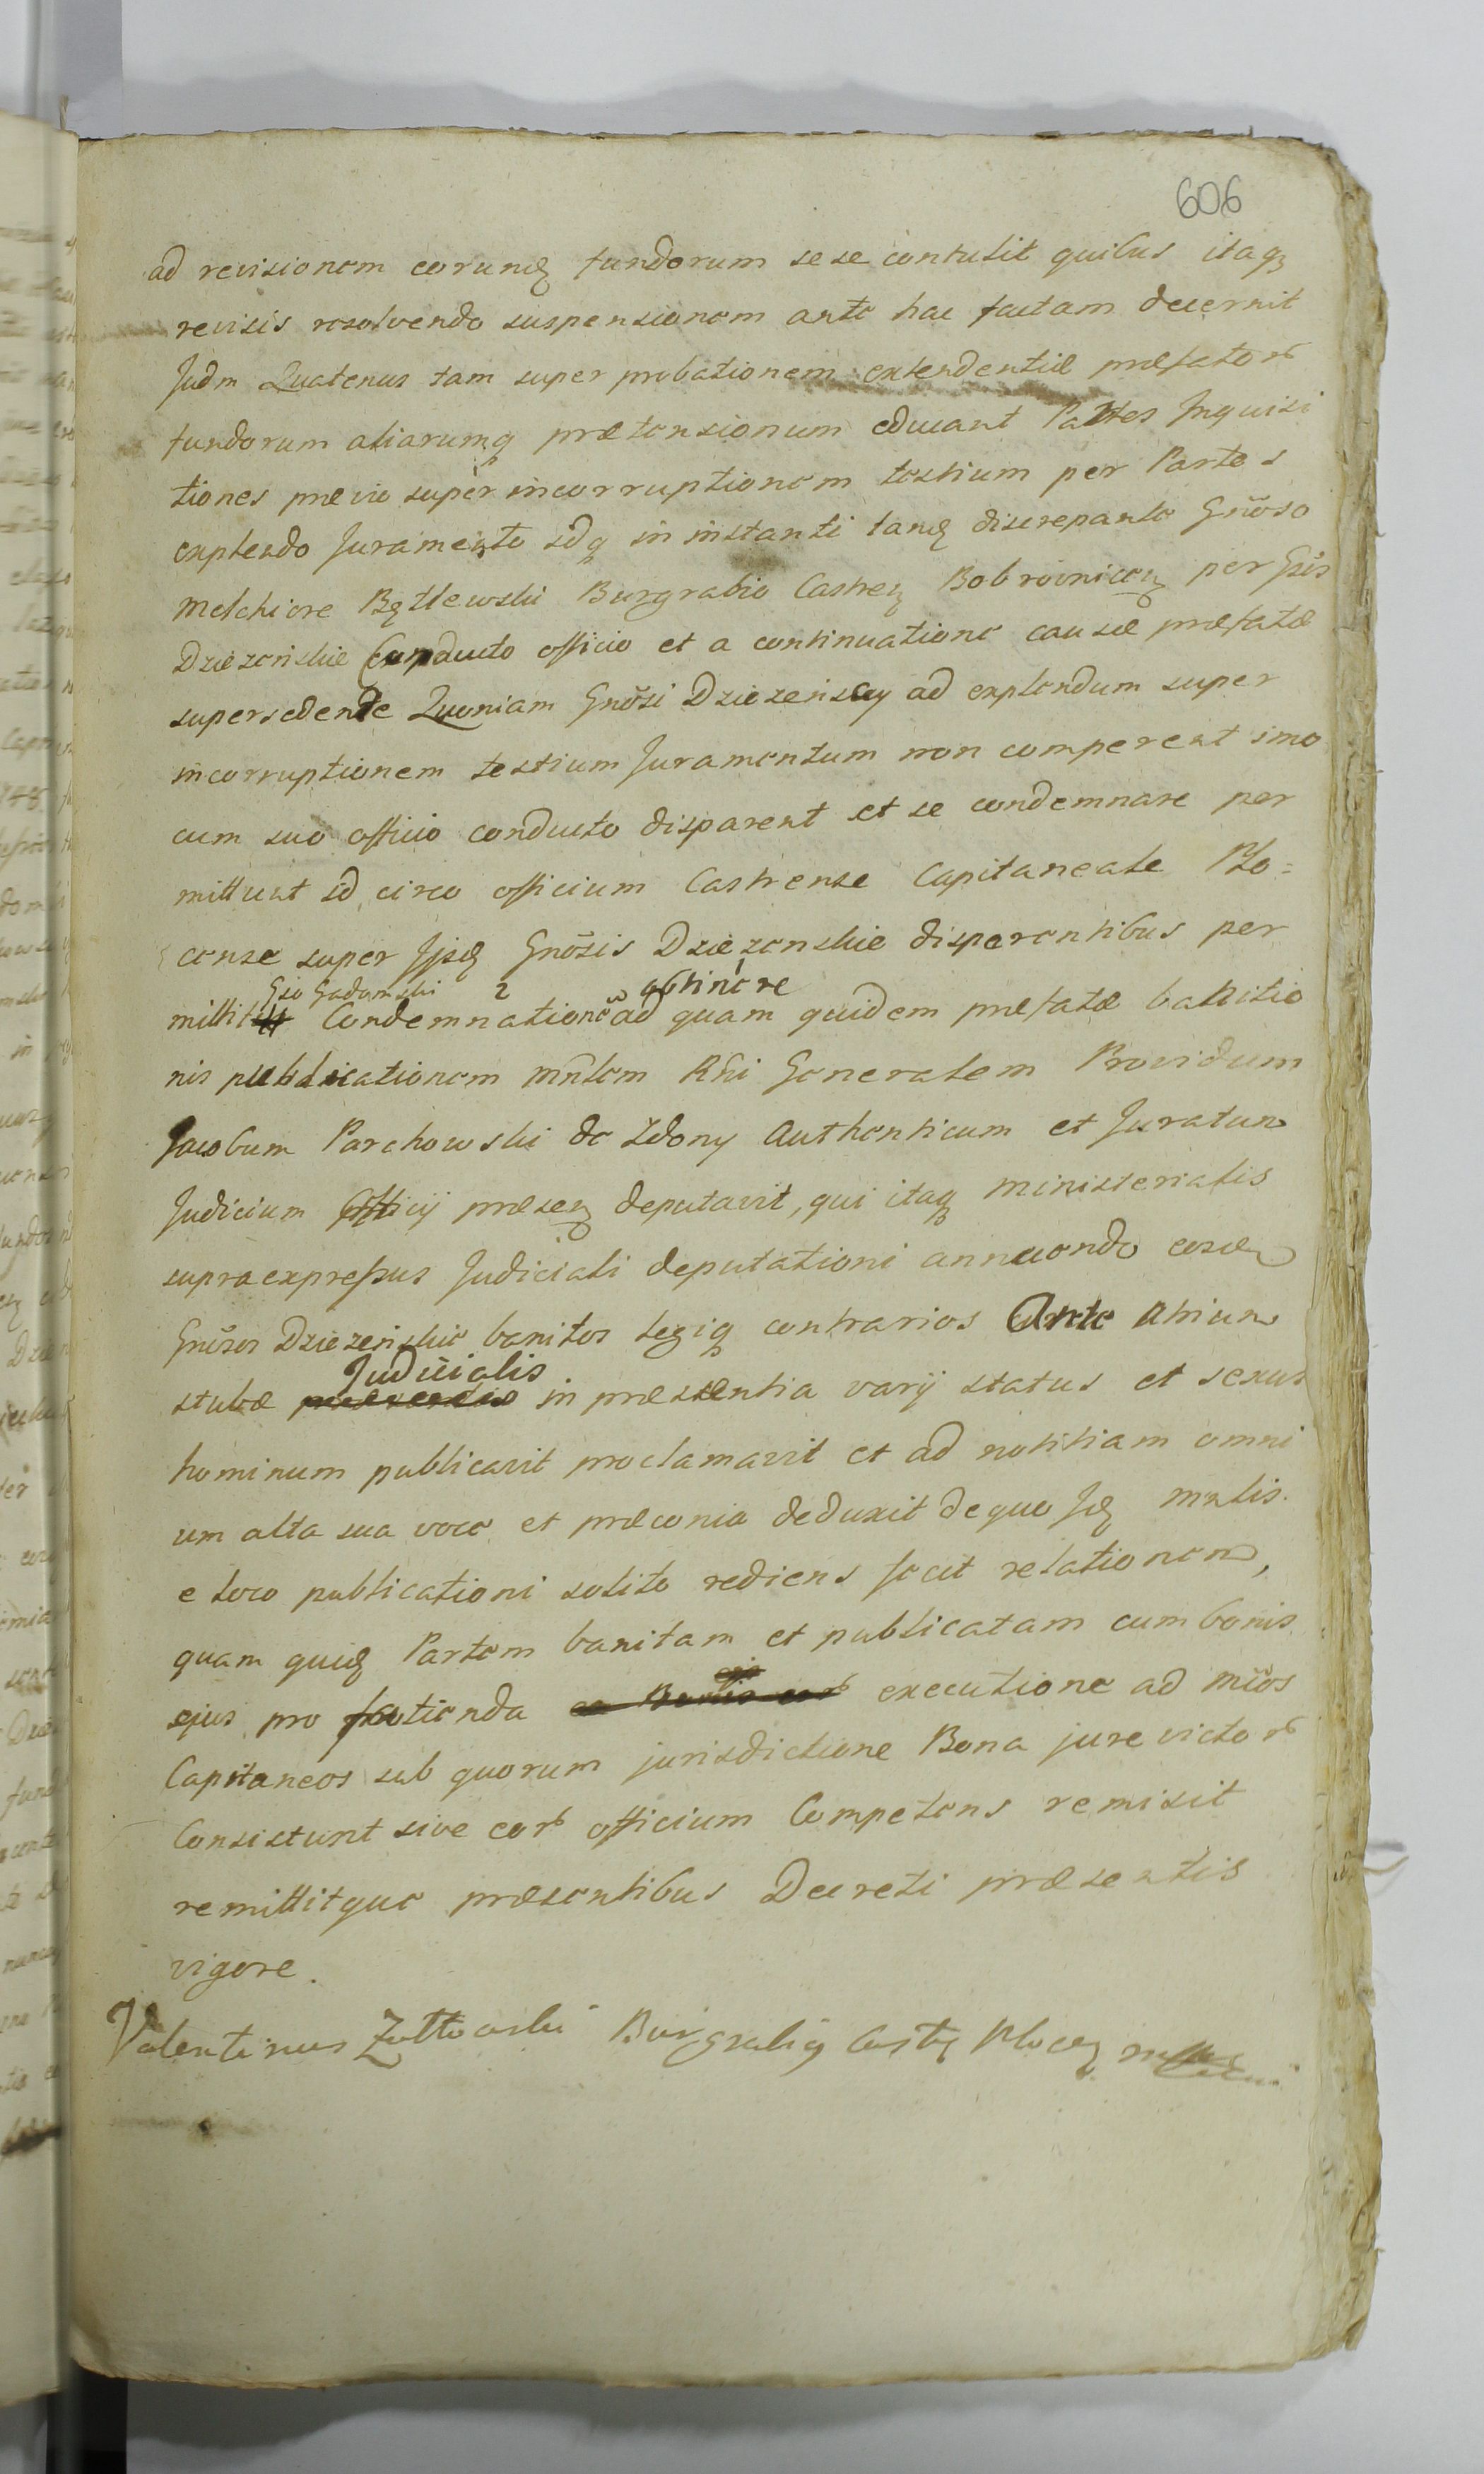 606
ad revisionem eorunq fundorum sese contulit quibus itaq
revisis resolvendo suspensionem ante hac factam decernit
Judm Quatenus tam super probationem extendentiæ præfator
fundorum aliarumq prætensionum educant Partes Inquisi
tiones prævio super incorruptionem testium per Partes
explendo Juramento idq in instanti tanq discrepante Gnõso
Melchiore Bętlewski Burgrabio Castren Bobrovnicen per Gsos
Dziezenskie Conducto officio et a continuatione causæ præfatæ
supersedente Quoniam Gnõsi Dziezenscy ad explendum super
incorruptionem testium Juramentum non comperent imo
cum suo officio conducto disparent et se condemnare per
mittunt id circo officium Castrense Capitaneale Plo=
cense super Ijsq Gnõsis Dziezenskie disparentibus per
Gso Gadomski 2 obtinere
mittit Condemnatione ad quam quidem præfatæ bannitio
nis publicationem mnlem Rni Generalem Providum
Jacobum Parchowski de Zdony Authenticum et Juratum
Judicium Officij præsen deputavit, qui itaq ministerialis
supraexpressus Judiciali deputationi annuendo eosdem
Gnõsos Dziezenskie banitos legiq contrarios Ante Atrium
Judicialis
stubæ in præsentia varij status et sexus
hominum publicavit proclamavit et ad notitiam omni
um alta sua voce et præconia deduxit de quo Jq mnlis.
e loco publicationi solito rediens fecit relationem,
quam quidq Partem banitam et publicatam cum bonis
ejus pro facienda executione ad mños
Capitaneos sub quorum jurisdictione Bona jure victor
Consistunt sive eor officium Competens remisit
remittitque præsentibus Decreti præsentis
vigore.
Valentinus Zółtowski Burgrabiq Castr Plocen